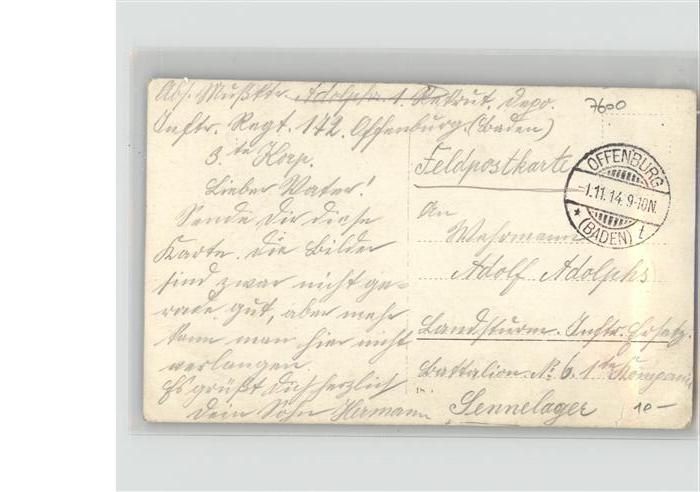 Abs. Mußktr. Adolphs 1. Rekrut. Depo.
Inftr. Regt. 172. Offenburg (Baden)
3.te Korp.
Lieber Vater!
Sende Dir diese
Karte. Die Bilder
sind zwar nicht ge-
rade gut, aber mehr
kann man hier nicht
verlangen.
Es grüßt Dich herzlich
Dein Sohn Hermann
7600
Feldpostkarte
OFFENBURG
-1.11.14. 9-10N.
* (BADEN) 1
An
Wehrmann
Adolf Adolphs
Landsturm-Inftr. Ersatz
Battalion. № 6. 1te Kompanie
in
Sennelager
10-